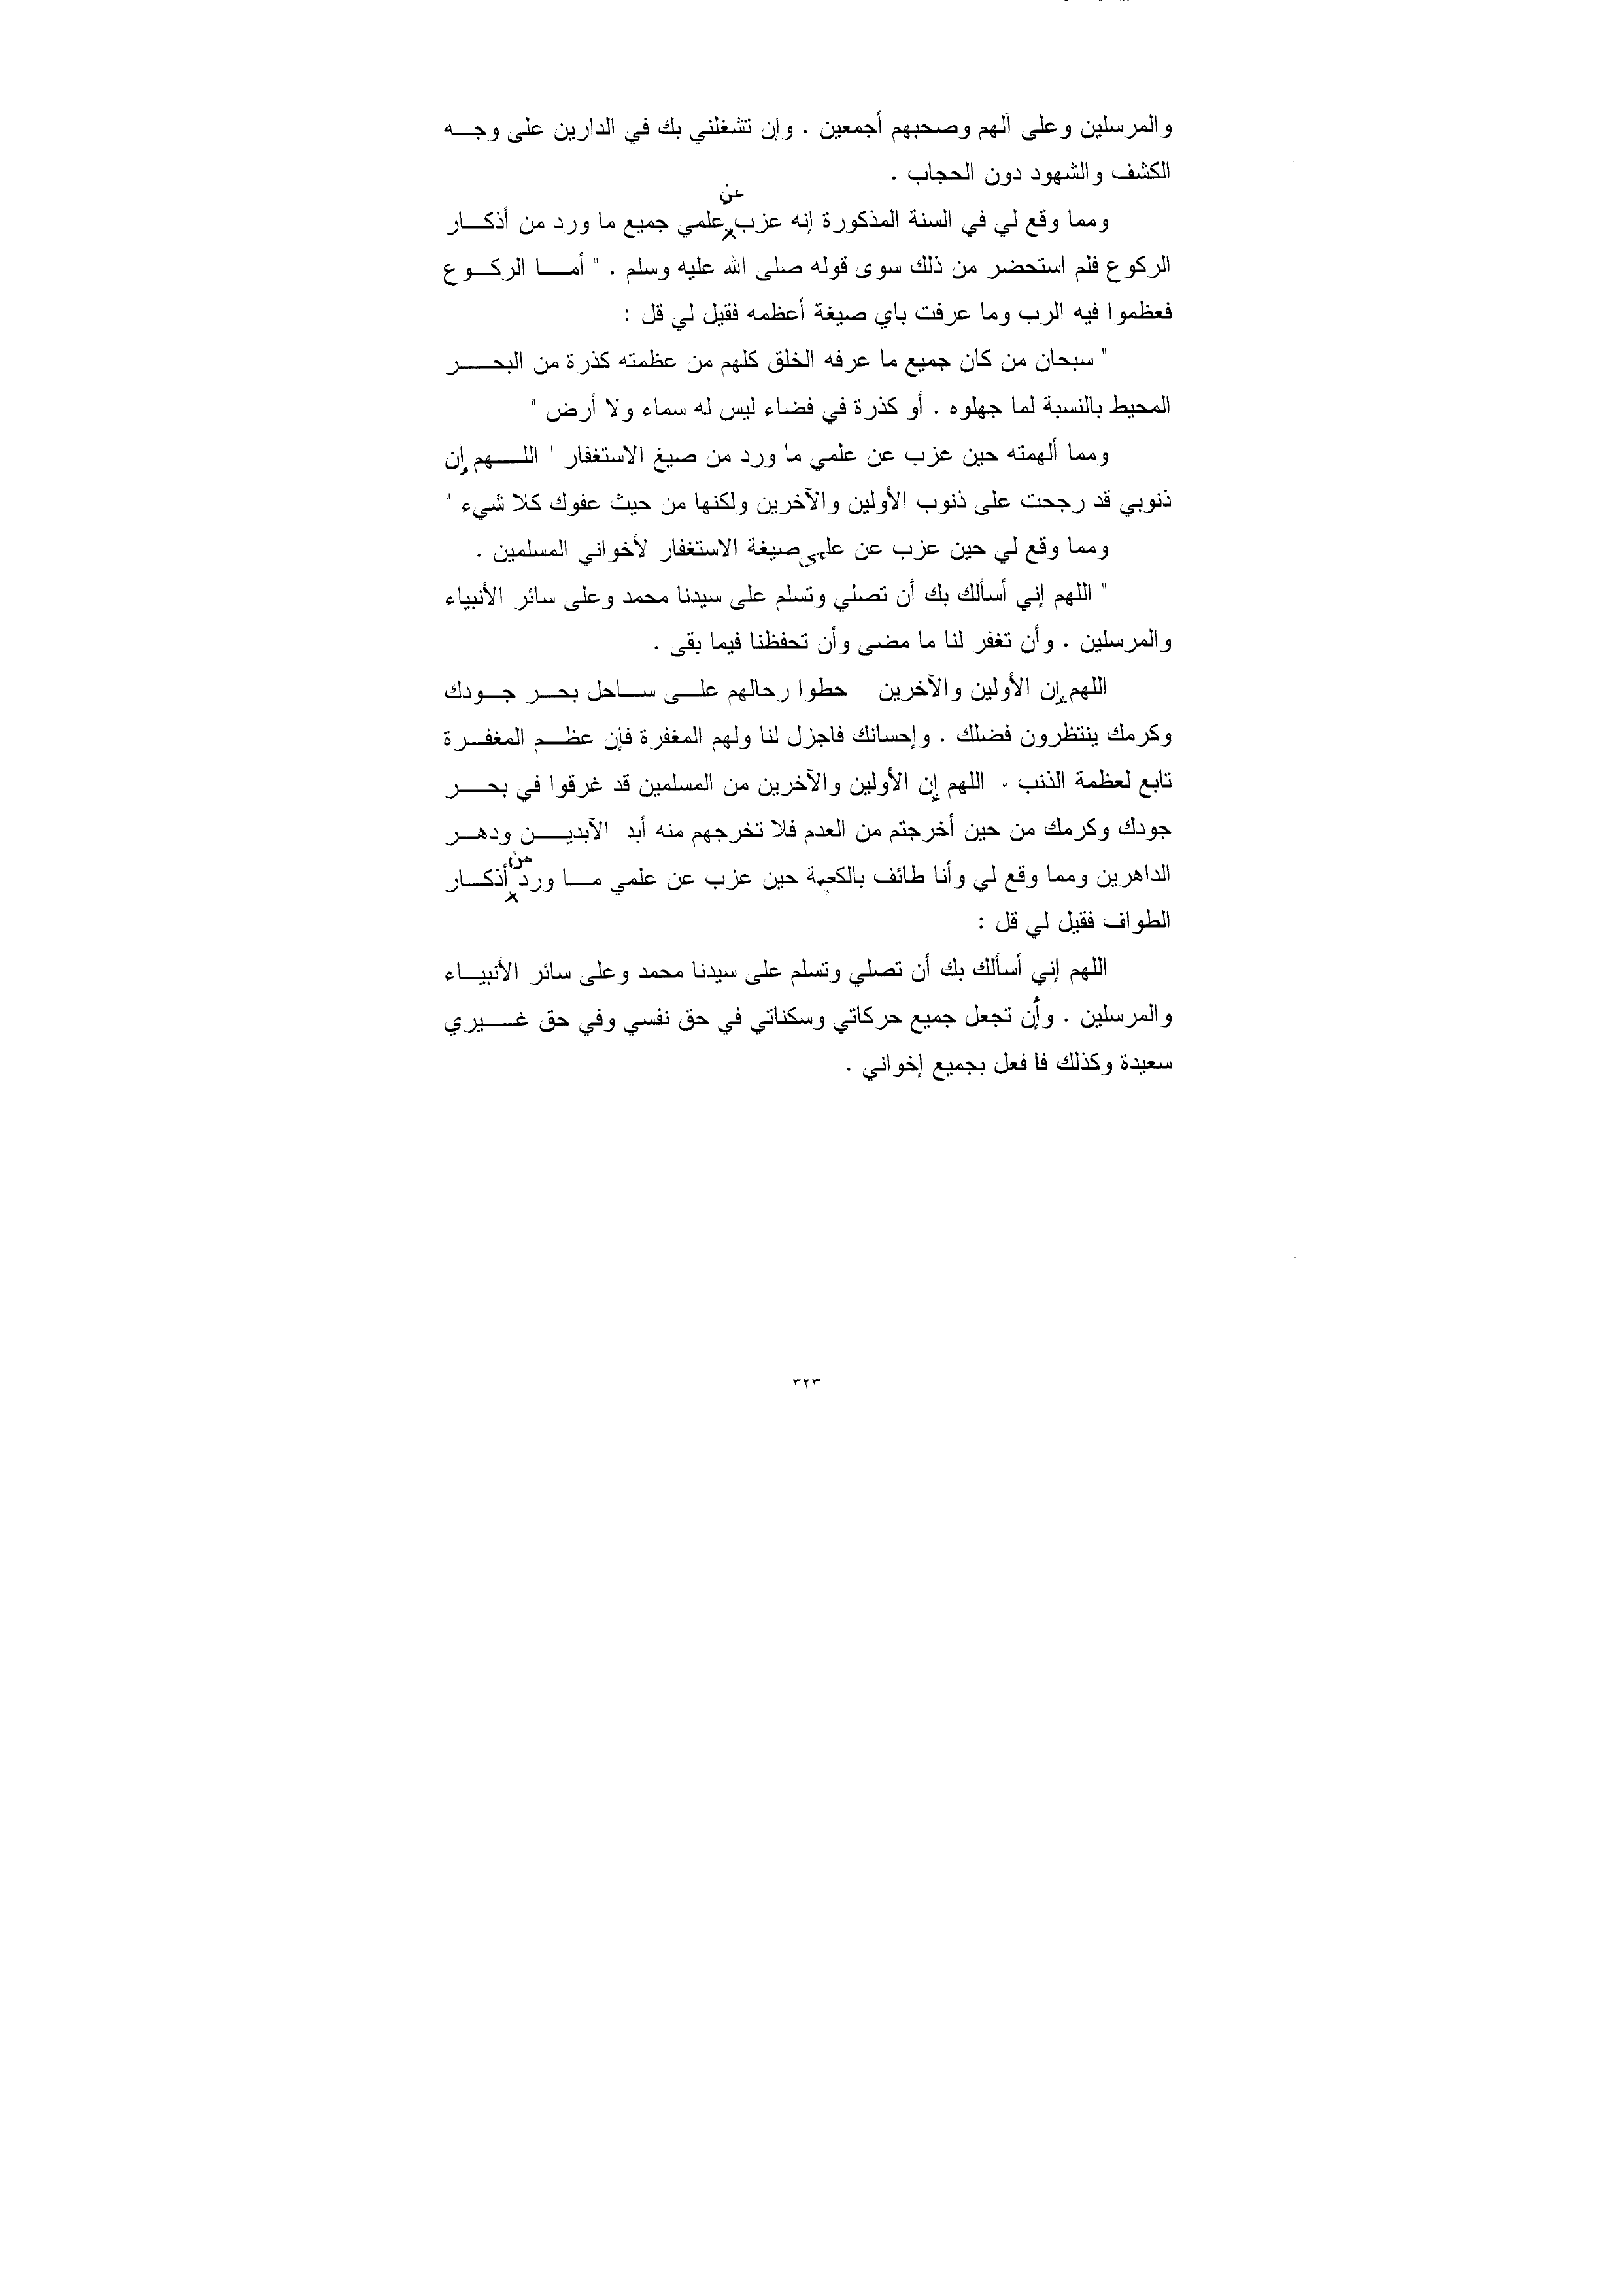 والمرسلين وعلى آلهم وصحبهم أجمعين . وإن تشغلني بك في الدارين على وجه
الكشف والشهود دون الحجاب .
ومما وقع لي في السنة المذكورة إنه عزب عن علمي جميع ما ورد من أذكار
الركوع فلم استحضر من ذلك سوى قوله صلى الله عليه وسلم . " أما الركوع
فعظموا فيه الرب وما عرفت باي صيغة أعظمه فقيل لي قل :
" سبحان من كان جميع ما عرفه الخلق كلهم من عظمته كذرة من البحر
المحيط بالنسبة لما جهلوه . أو كذرة في فضاء ليس له سماء ولا أرض "
ومما ألهمته حين عزب عن علمي ما ورد من صيغ الاستغفار " اللهم إن
ذنوبي قد رجحت على ذنوب الأولين والآخرين ولكنها من حيث عفوك كلا شيء "
ومما وقع لي حين عزب عن علمي صيغة الاستغفار لأخواني المسلمين .
" اللهم إني أسألك بك أن تصلي وتسلم على سيدنا محمد وعلى سائر الأنبياء
والمرسلين . وأن تغفر لنا ما مضى وأن تحفظنا فيما بقى .
اللهم إن الأولين والآخرين حطوا رحالهم على ساحل بحر جودك
وكرمك ينتظرون فضلك . وإحسانك فاجزل لنا ولهم المغفرة فإن عظم المغفرة
تابع لعظمة الذنب . اللهم إن الأولين والآخرين من المسلمين قد غرقوا في بحر
جودك وكرمك من حين أخرجتم من العدم فلا تخرجهم منه أبد الآبدين ودهر
الداهرين ومما وقع لي وأنا طائف بالكعبة حين عزب عن علمي ما ورد من أذكار
الطواف فقيل لي قل :
اللهم إني أسألك بك أن تصلي وتسلم على سيدنا محمد وعلى سائر الأنبياء
والمرسلين . وأن تجعل جميع حركاتي وسكناتي في حق نفسي وفي حق غيري
سعيدة وكذلك فافعل بجميع إخواني .
٣٢٣